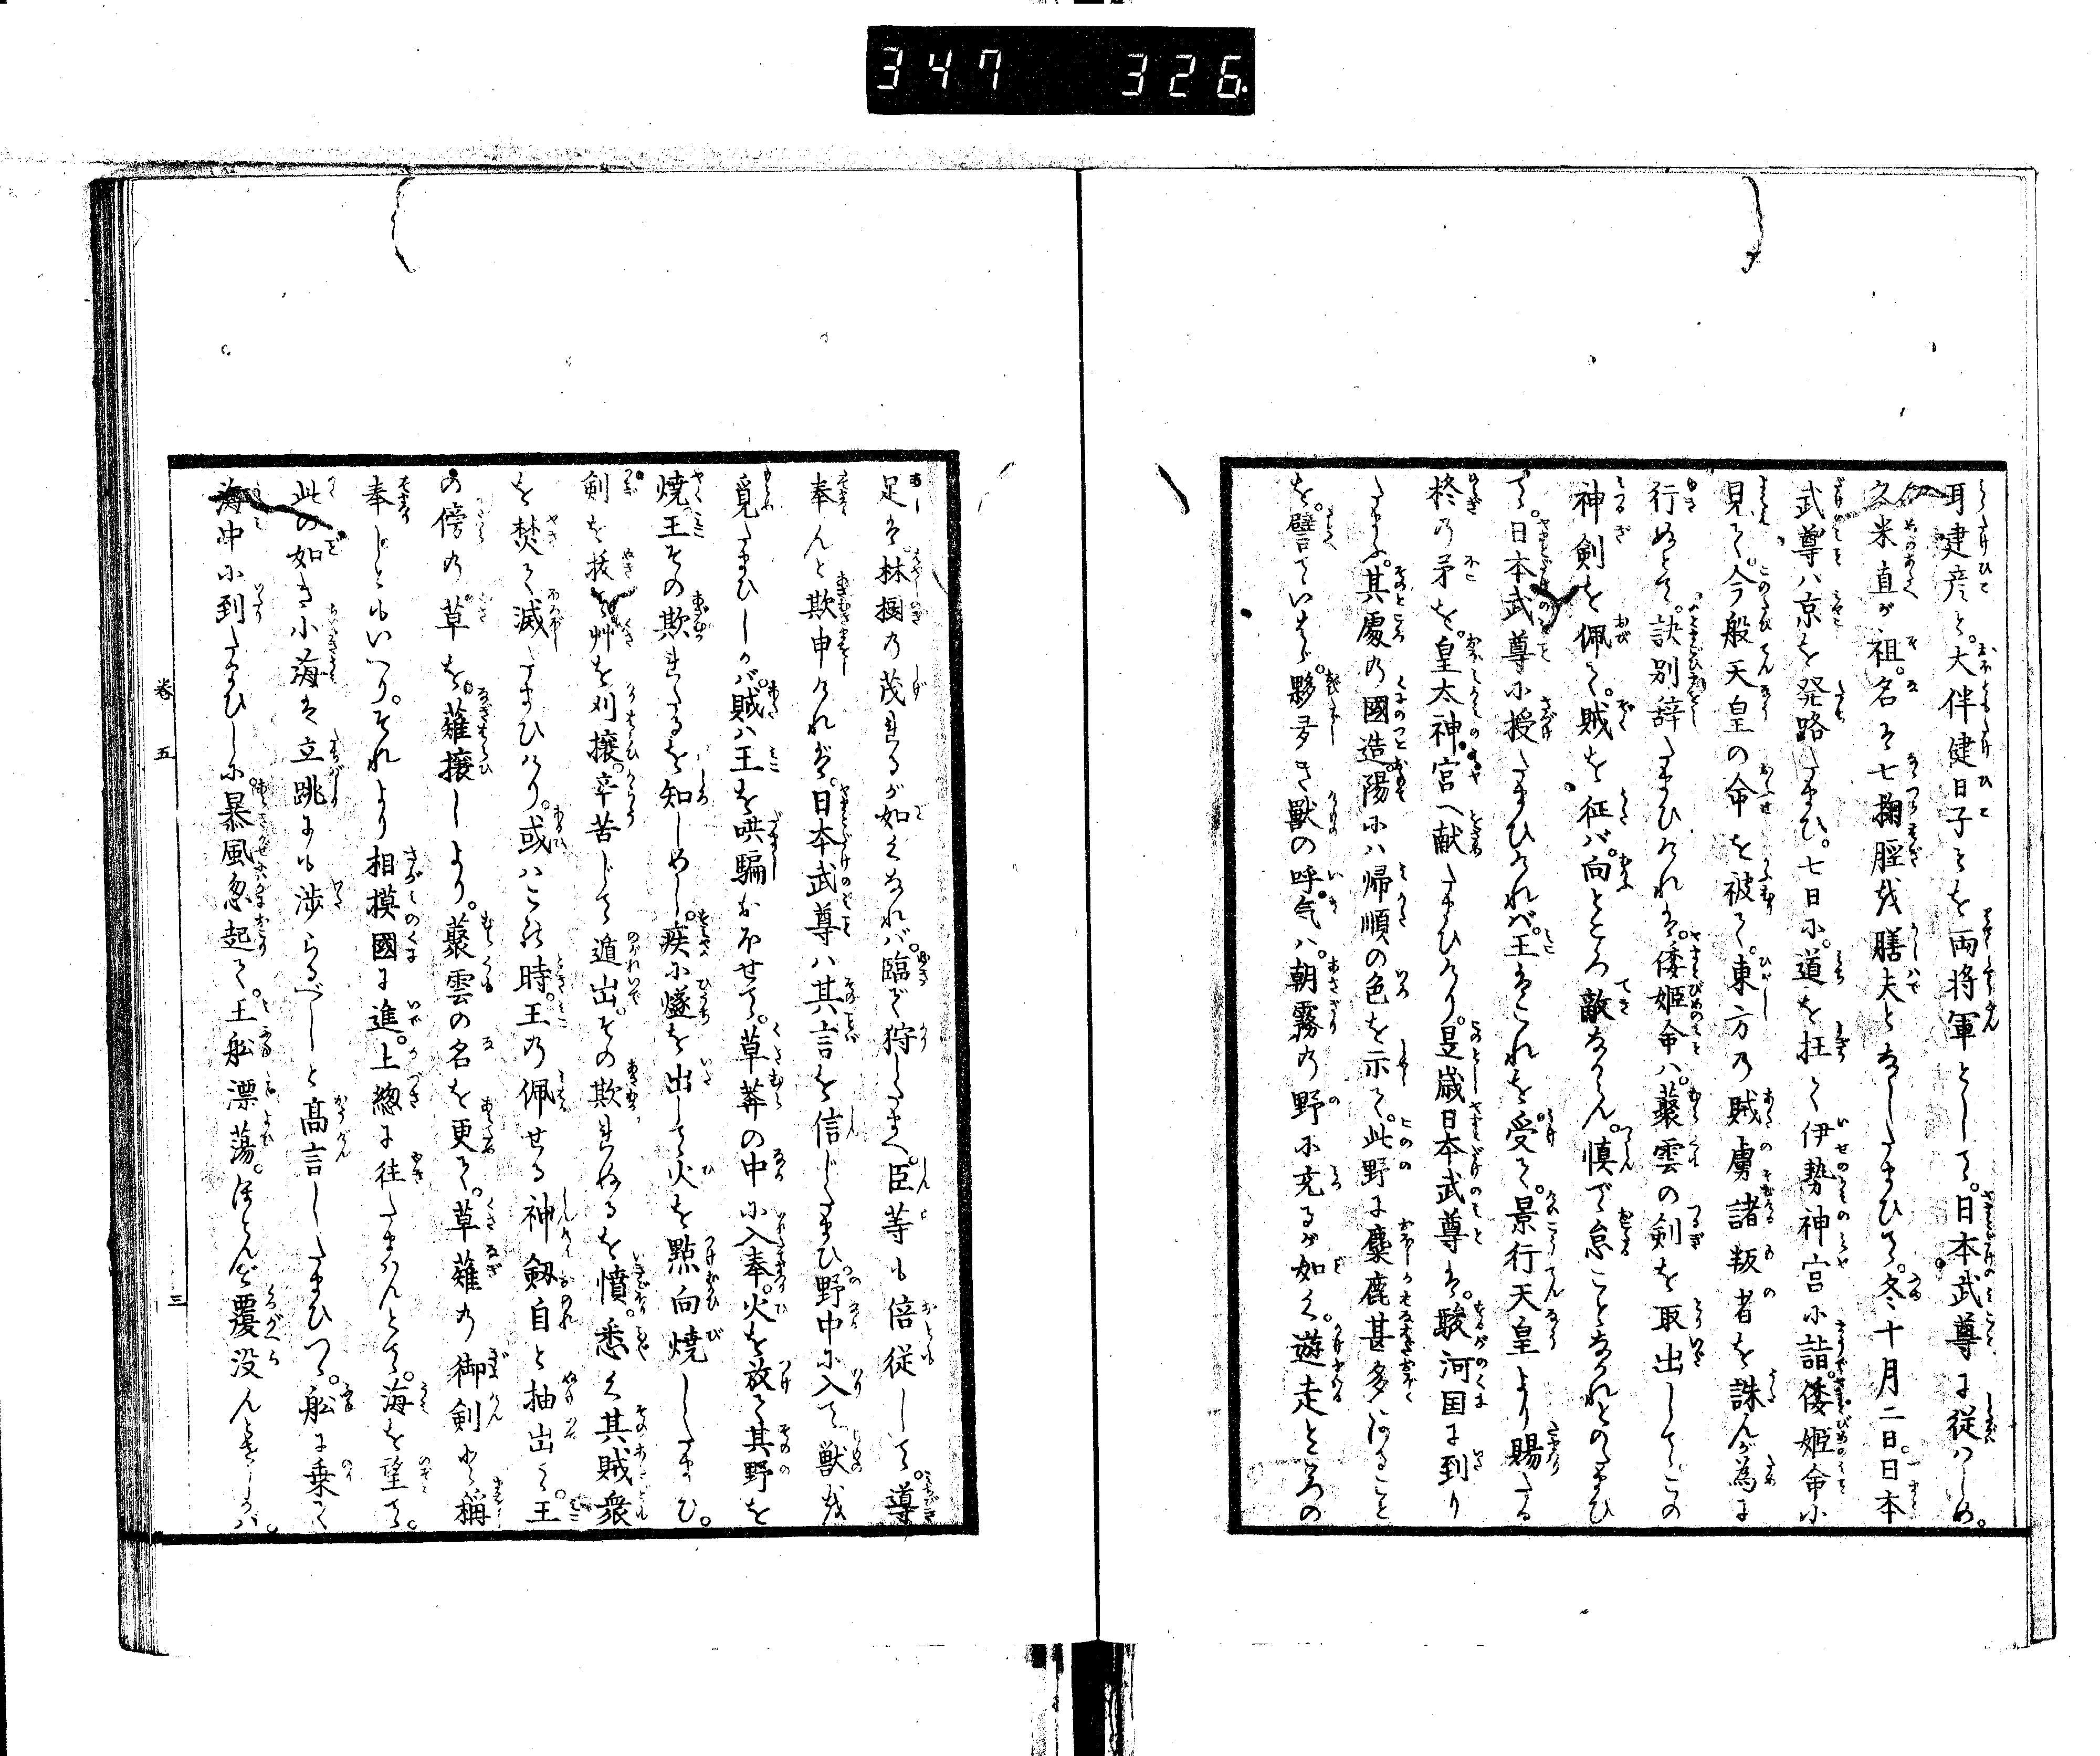 347 326
耳建彦と。大伴健日子とを両将軍として。日本武尊に従はしめ。
久米直が祖。名は七掬脛を膳夫となしたまひて。冬十月二日。日本
武尊ハ京を発路たまひ。七日に。道を抂て伊勢神宮に詣。倭姫命に
見て。今般天皇の命を被て。東方の賊虜諸叛者を誅んが為に
行ぬとて。訣別辞たまひければ。倭姫命ハ。藂雲の剣を取出して。この
神剣を佩て。賊を征バ。向ところ敵なからん。慎で怠ことなかれとのたまひ
て。日本武尊に授たまひければ。王はこれを受て。景行天皇より賜たる
柊の矛を。皇太神宮へ献たまひけり。是歳日本武尊は。駿河国に到り
たまふ。其處の國造。陽にハ帰順の色を示て。此野に麋鹿甚多あること
を。譬ていはゞ。夥多き獣の呼気ハ。朝霧の野に充るが如く。遊走ところの
足は。林樹の茂れるが如くなれバ。臨で狩したまへ。臣等も倍従して。導
奉んと欺申ければ。日本武尊ハ其言を信じたまひ。野中に入て獣を
覓たまひしかバ。賊ハ王を哄騙おほせて。草莽の中に入奉。火を放て其野を
焼。王その欺れたるを知しめし。疾に燧を出して火を點。向焼したまひ。
剣を抜て艸を刈攘。辛苦じて遁出。その欺れぬるを憤。悉く其賊衆
を焚て滅たまひけり。或ハこの時。王の佩せる神剱自と抽出て。王
の傍の草を。薙攘しより。藂雲の名を更て。草薙の御剣と稱
奉しともいへり。それより相摸國に進。上総に往たまはんとて。海を望て。
此の如き小海は立跳にも渉らるべしと高言したまひつゝ。舩に乗て
海中に到たまひしに。暴風忽起て。王舩漂蕩。ほとんど覆没んとせしかバ。
巻五
三